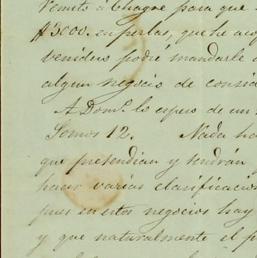 Remeto á Chagre para que
$3000. en perlas, que he acop
venidero podré mandarle a
algun negocio de consid
A Dom.º lo espero de un
Somos 12. Nada ha
que pretendian y tendrán
hacer varias clarificacion
pues en estos negocios hay
y que naturalmente el p